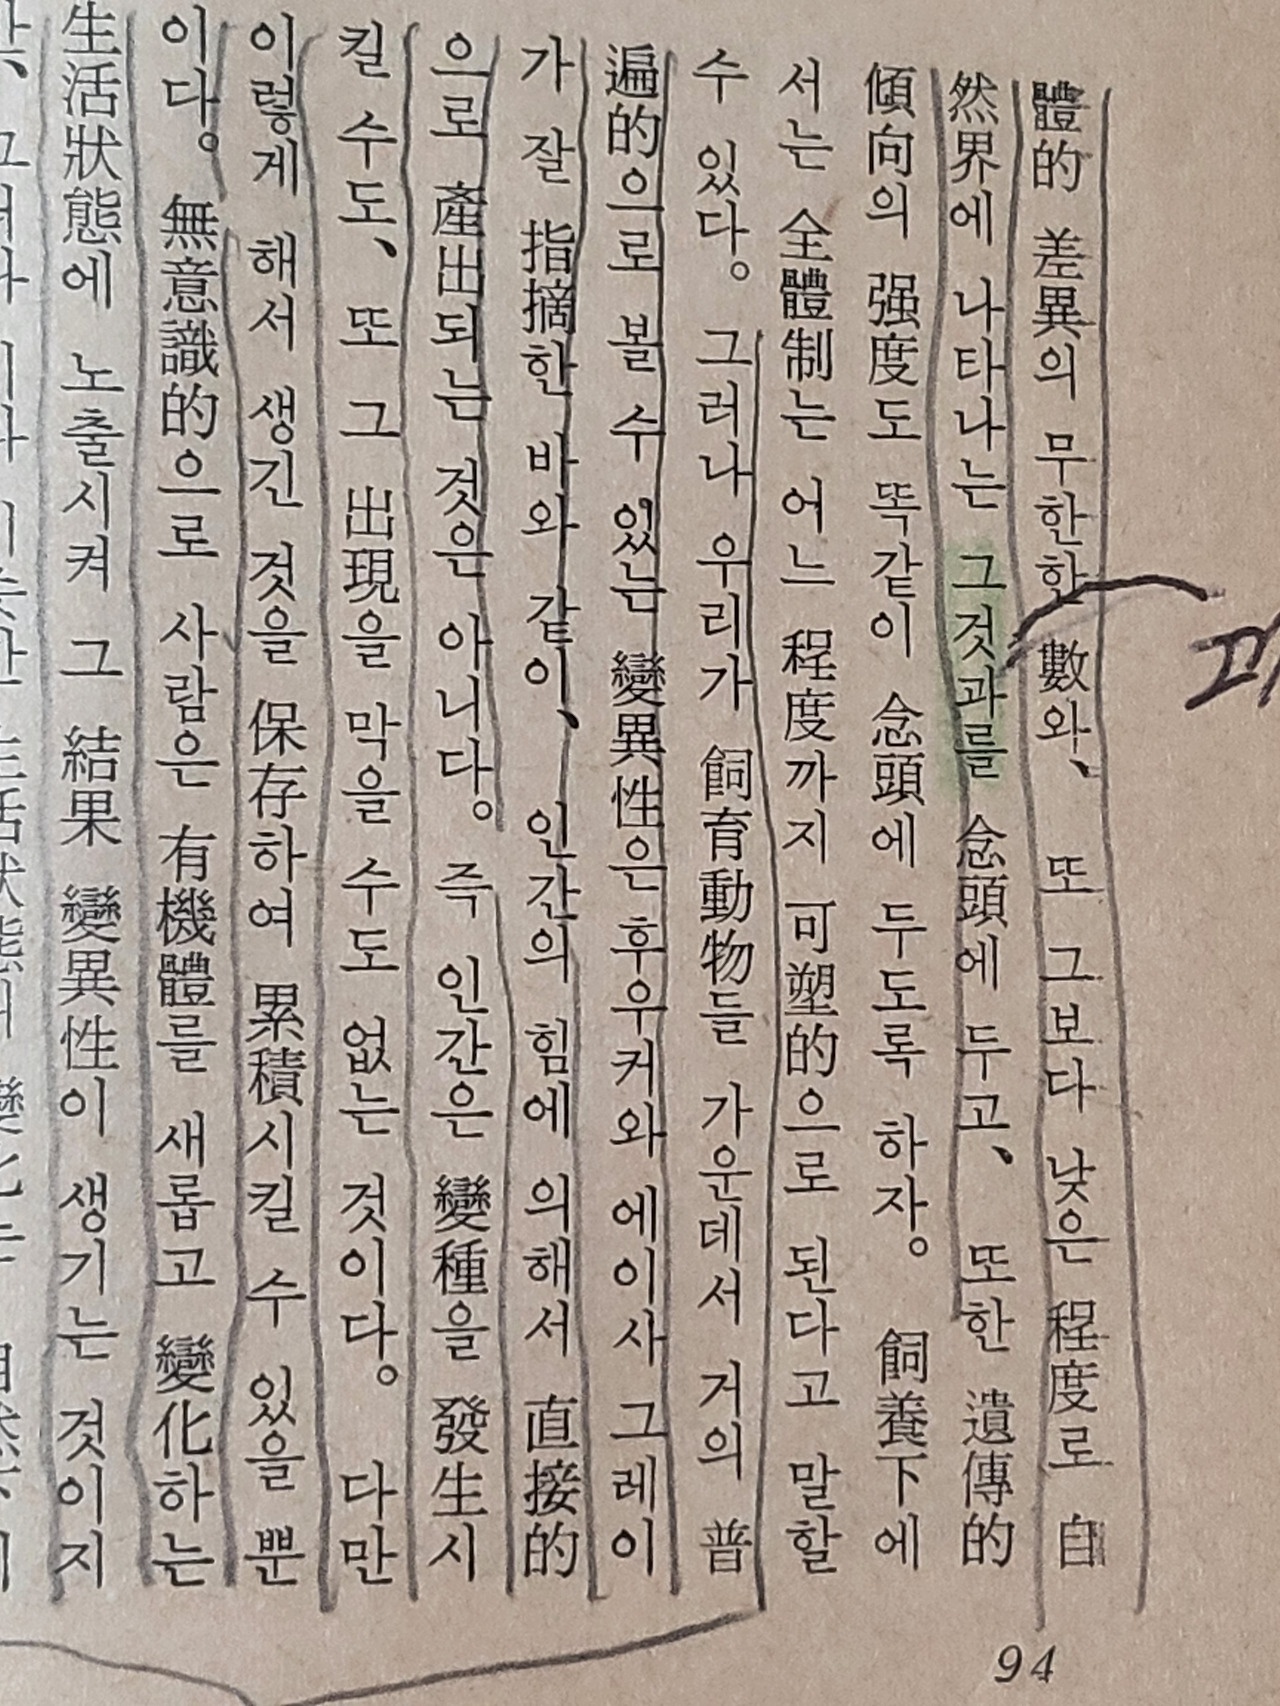 體的 差異의 무한한 數와、 또 그보다 낮은 程度로 自
然界에 나타나는 그것과를 念頭에 두고、 또한 遺傳的
傾向의 强度도 똑같이 念頭에 두도록 하자。 飼養下에
서는 全體制는 어느 程度까지 可塑的으로 된다고 말할
수 있다。 그러나 우리가 飼育動物들 가운데서 거의 普
遍的으로 볼 수 있는 變異性은 후우커와 에이사 그레이
가 잘 指摘한 바와 같이、 인간의 힘에 의해서 直接的
으로 産出되는 것은 아니다。 즉 인간은 變種을 發生시
킬 수도、 또 그 出現을 막을 수도 없는 것이다。 다만
이렇게 해서 생긴 것을 保存하여 累積시킬 수 있을 뿐
이다。 無意識的으로 사람은 有機體를 새롭고 變化하는
生活狀態에 노출시켜 그 結果 變異性이 생기는 것이지
94